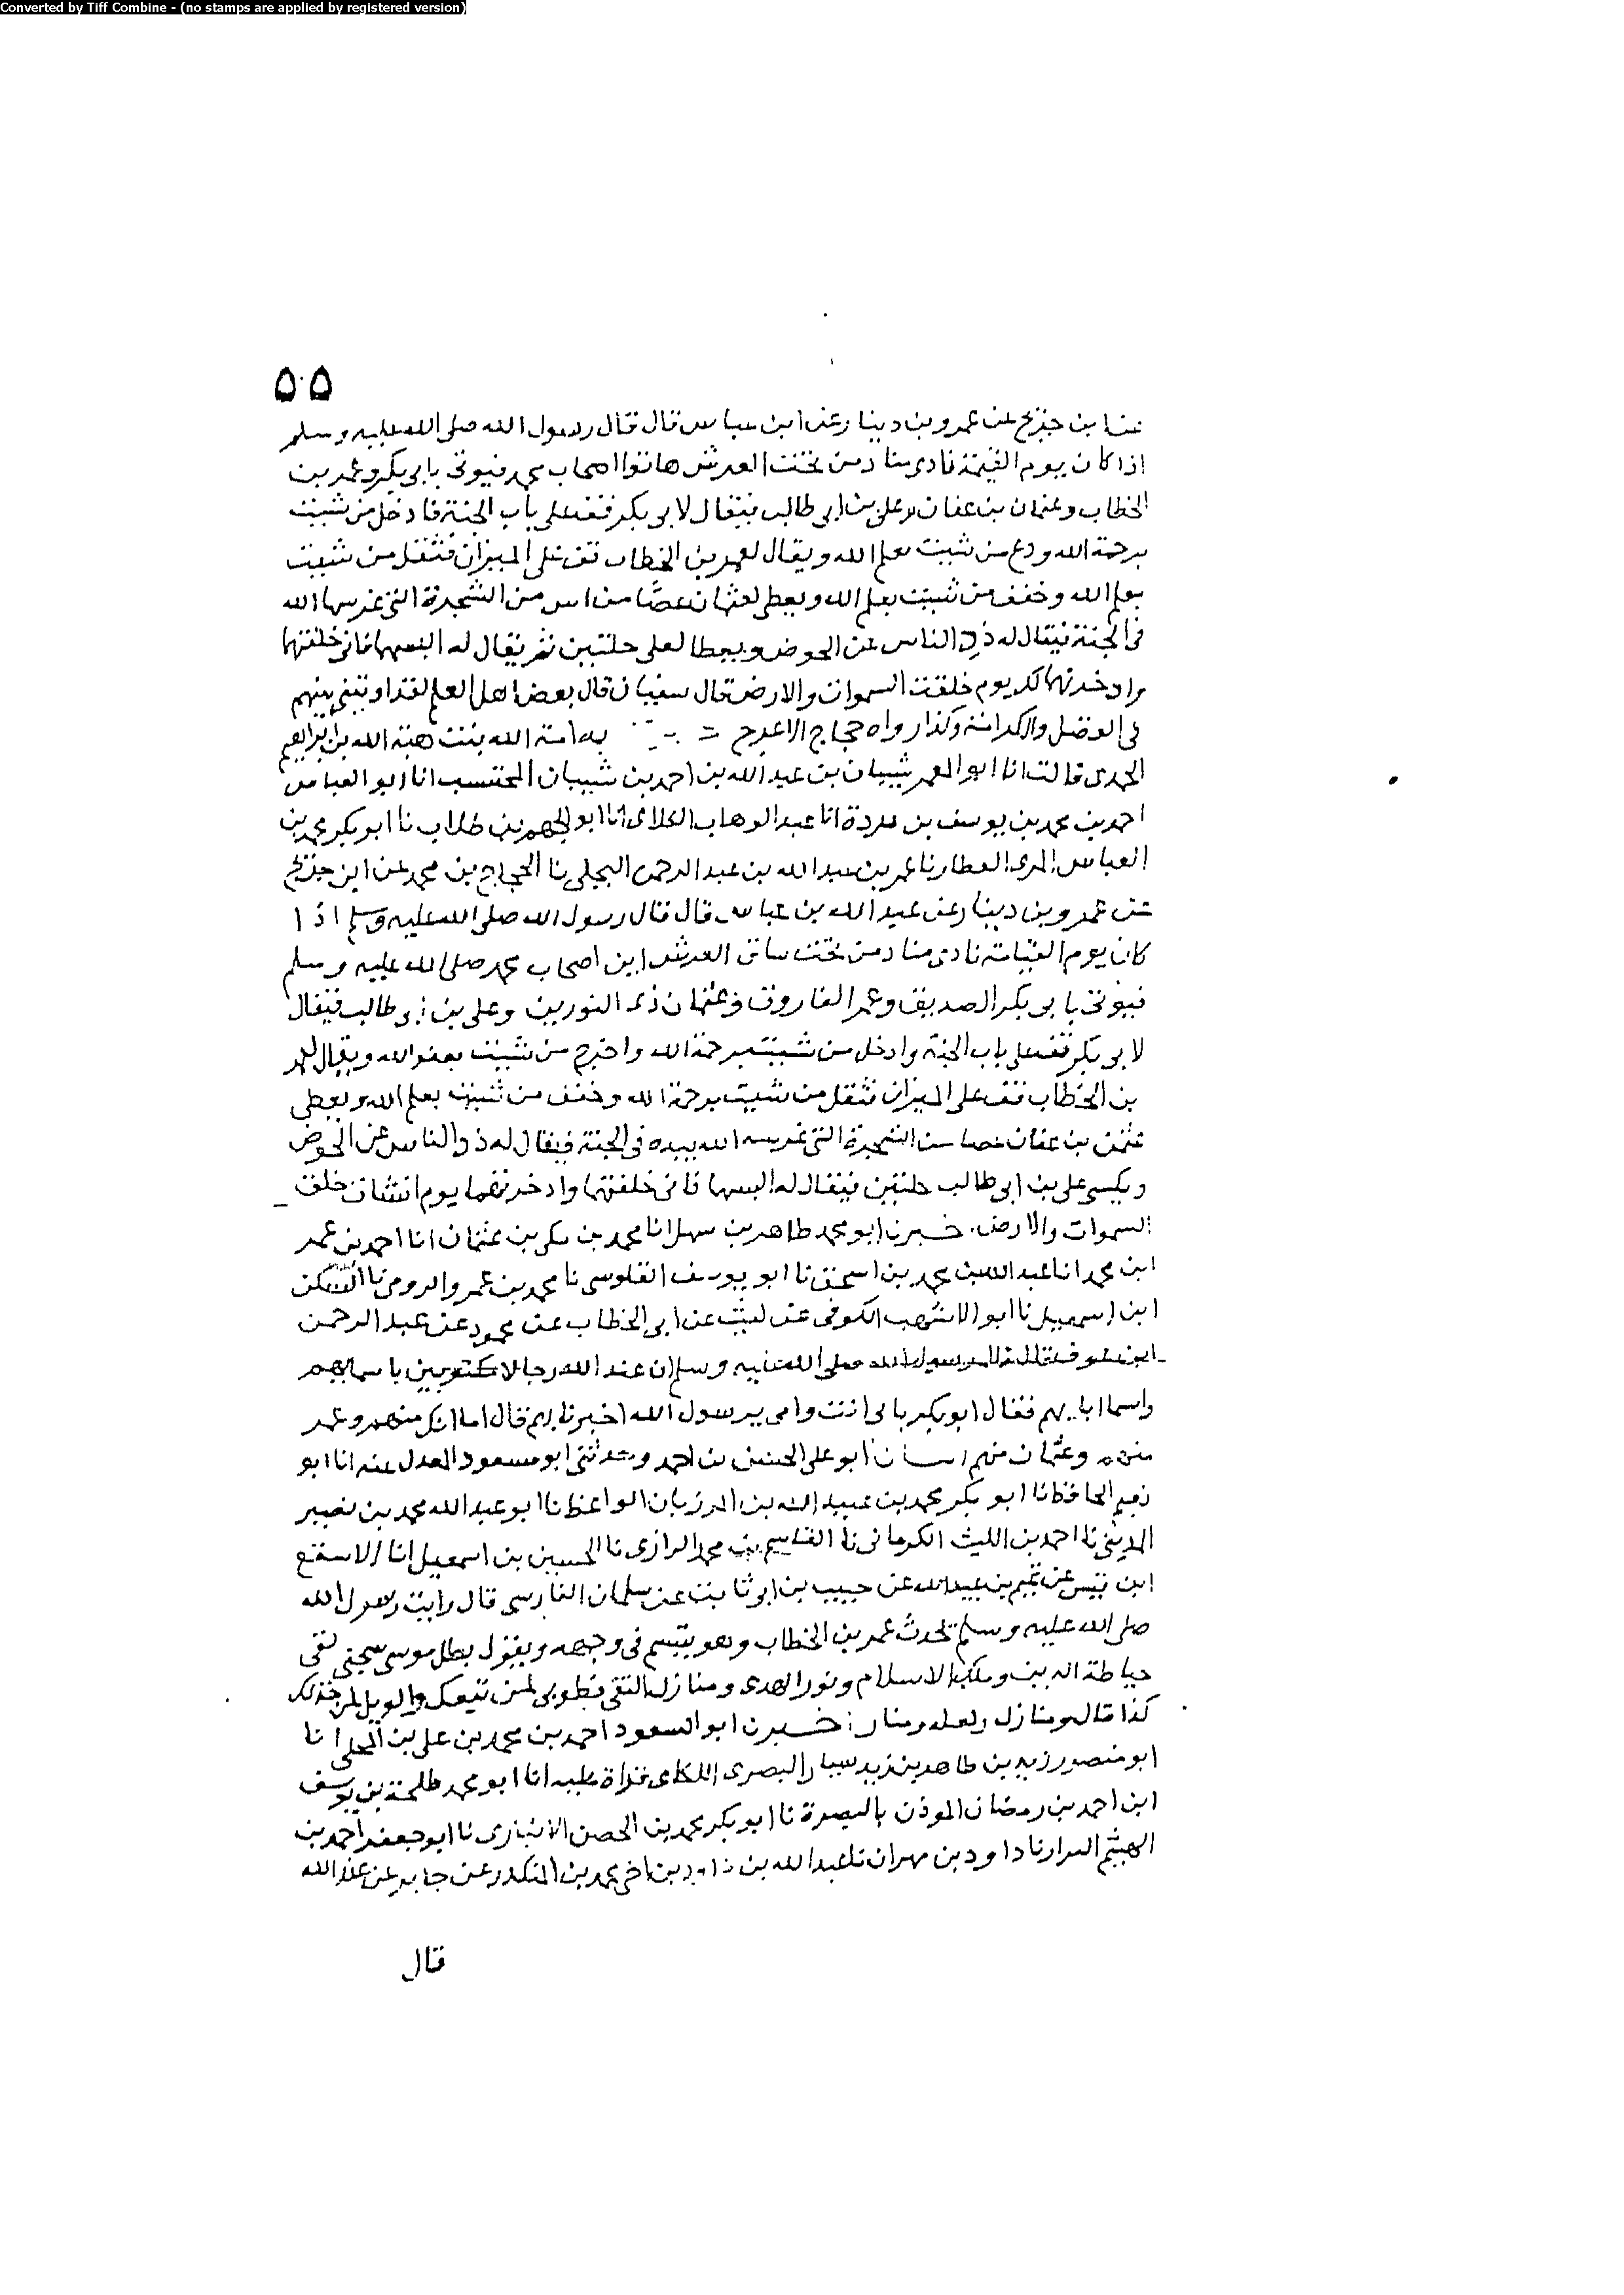 Converted by Tiff Combine - (no stamps are applied by registered version)
٥٠٥
عن ابن جريج عن عمرو بن دينار عن ابن عباس قال قال رسول الله صلى الله عليه وسلم
اذا كان يوم القيمة نادى مناد من تحت العرش هاتوا اصحاب محمد فيوتى بابى بكر وعمر بن
الخطاب وعثمان بن عفان وعلى بن ابى طالب فيقال لابى بكر قف على باب الجنة فادخل من شيت
برحمة الله ودع من شيت بعلم الله ويقال لعمر بن الخطاب قف على الميزان فثقل من شيت
بعلم الله وخفف من شيت بعلم الله ويعطى لعثمان عصًا من اس من الشجرة التى غرسها الله
فى الجنة فيقال له ذد الناس عن الحوض ويعطا لعلى حلتين ثم يقال له البسهما فانى خلقتهما
وادخرتهما لك يوم خلقت السموات والارض قال سفيان قال بعض اهل العلم لقد اوتينى بينهم
فى الفضل والكرامة وكذا رواه حجاج الاعرج به امة الله بنت هبة الله بن ابراهيم
قالت انا ابو المعمر شيبان بن عبد الله بن احمد بن شيبان المحتسب انا ابو العباس
احمد بن محمد بن يوسف بن مردة انا عبد الوهاب الكلابى انا ابو الجهم بن طلاب نا ابو بكر محمد بن
العباس المرى العطار نا عمر بن عبد الله بن عبد الرحمن البجلى نا الحجاج بن محمد عن ابن جريج
عن عمرو بن دينار عن عبد الله بن عباس قال قال رسول الله صلى الله عليه وسلم اذا
كان يوم القيامة نادى مناد من تحت ساق العرش اين اصحاب محمد صلى الله عليه وسلم
فيوتى بابى بكر الصديق وعمر الفاروق وعثمان ذى النورين وعلى بن ابى طالب فيقال
لابى بكر قف على باب الجنة وادخل من شيت برحمة الله واخرج من شيت بعفو الله ويقال لعمر
بن الخطاب قف على الميزان فثقل من شيت برحمة الله وخفف من شيت بعلم الله ويعطى
عثمن بن عفان عصا من الشجرة التى غرسه الله بيده فى الجنة فيقال له ذد الناس عن الحوض
ويكسى على بن ابى طالب حلتين فيقال له البسهما فانى خلقتهما وادخرتهما يوم انشات خلق
السموات والارض. خبرنا ابو محمد طاهر بن سهل انا محمد بن مكى بن عثمان انا احمد بن عمر
ابن محمد انا عبد الله بن محمد بن اسحق نا ابو يوسف القلوسى نا محمد بن عمرو الرومى نا السكن
ابن اسمعيل نا ابو الاشهب الكوفى عن ليث عن ابى الخطاب عن محمود عن عبد الرحمن
ابن عوف قال قال رسول الله صلى الله عليه وسلم ان عند الله رجالا مكتوبين باسمايهم
واسما ابايهم فقال ابو بكر بابى انت وامى يرسول الله اخبرنا بهم قال اما انك منهم وعمر
منهم وعثمان منهم ابو على الحسن بن احمد وحدثنى ابو مسعود المعدل عنه انا ابو
نعيم الحافظ نا ابو بكر محمد بن عبيد الله بن المرزبان الواعظ نا ابو عبد الله محمد بن نصير
المدينى نا احمد بن الليث الكرمانى نا القاسم بن محمد الرازى نا الحسين بن اسمعيل انا الاسقع
ابن قيس عن تميم بن عبيد الله عن حبيب بن ابى ثابت عن سلمان الفارسى قال رايت رسول الله
صلى الله عليه وسلم يحدث عمر بن الخطاب وهو يتبسم فى وجهه ويقول بطل موسى
حياطة الدين وملكة الاسلام ونور الهدى ومنازل التقى فطوبى لمن تبعك والويل لمن خذلك
كذا قال ومنازل ولعله ومنار: خبرنا ابو السعود احمد بن محمد بن على بن المجلى انا
ابو منصور زيد بن طاهر بن زيد سيار البصرى قراة عليه انا ابو محمد طلحة بن يوسف
ابن احمد بن رمضان الموذن بالبصرة نا ابو بكر محمد بن الحصن الانبارى نا ابو جعفر احمد بن
الهيثم نا داود بن مهران نا عبد الله بن داود بن اخى محمد بن المنكدر عن جابر عن عبد الله
قال